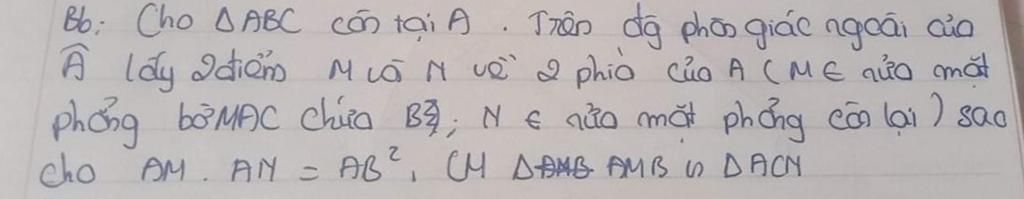 Bb: Cho ΔABC cân tại A. Trên đg phân giác ngoài của
Â lấy 2 điểm M và N về 2 phía của A (M ∈ nửa mặt
phẳng bờ MAC chứa B; N ∈ nửa mặt phẳng còn lại) sao
cho AM. AN = AB², CM Δ AMB ᔕ ΔACN